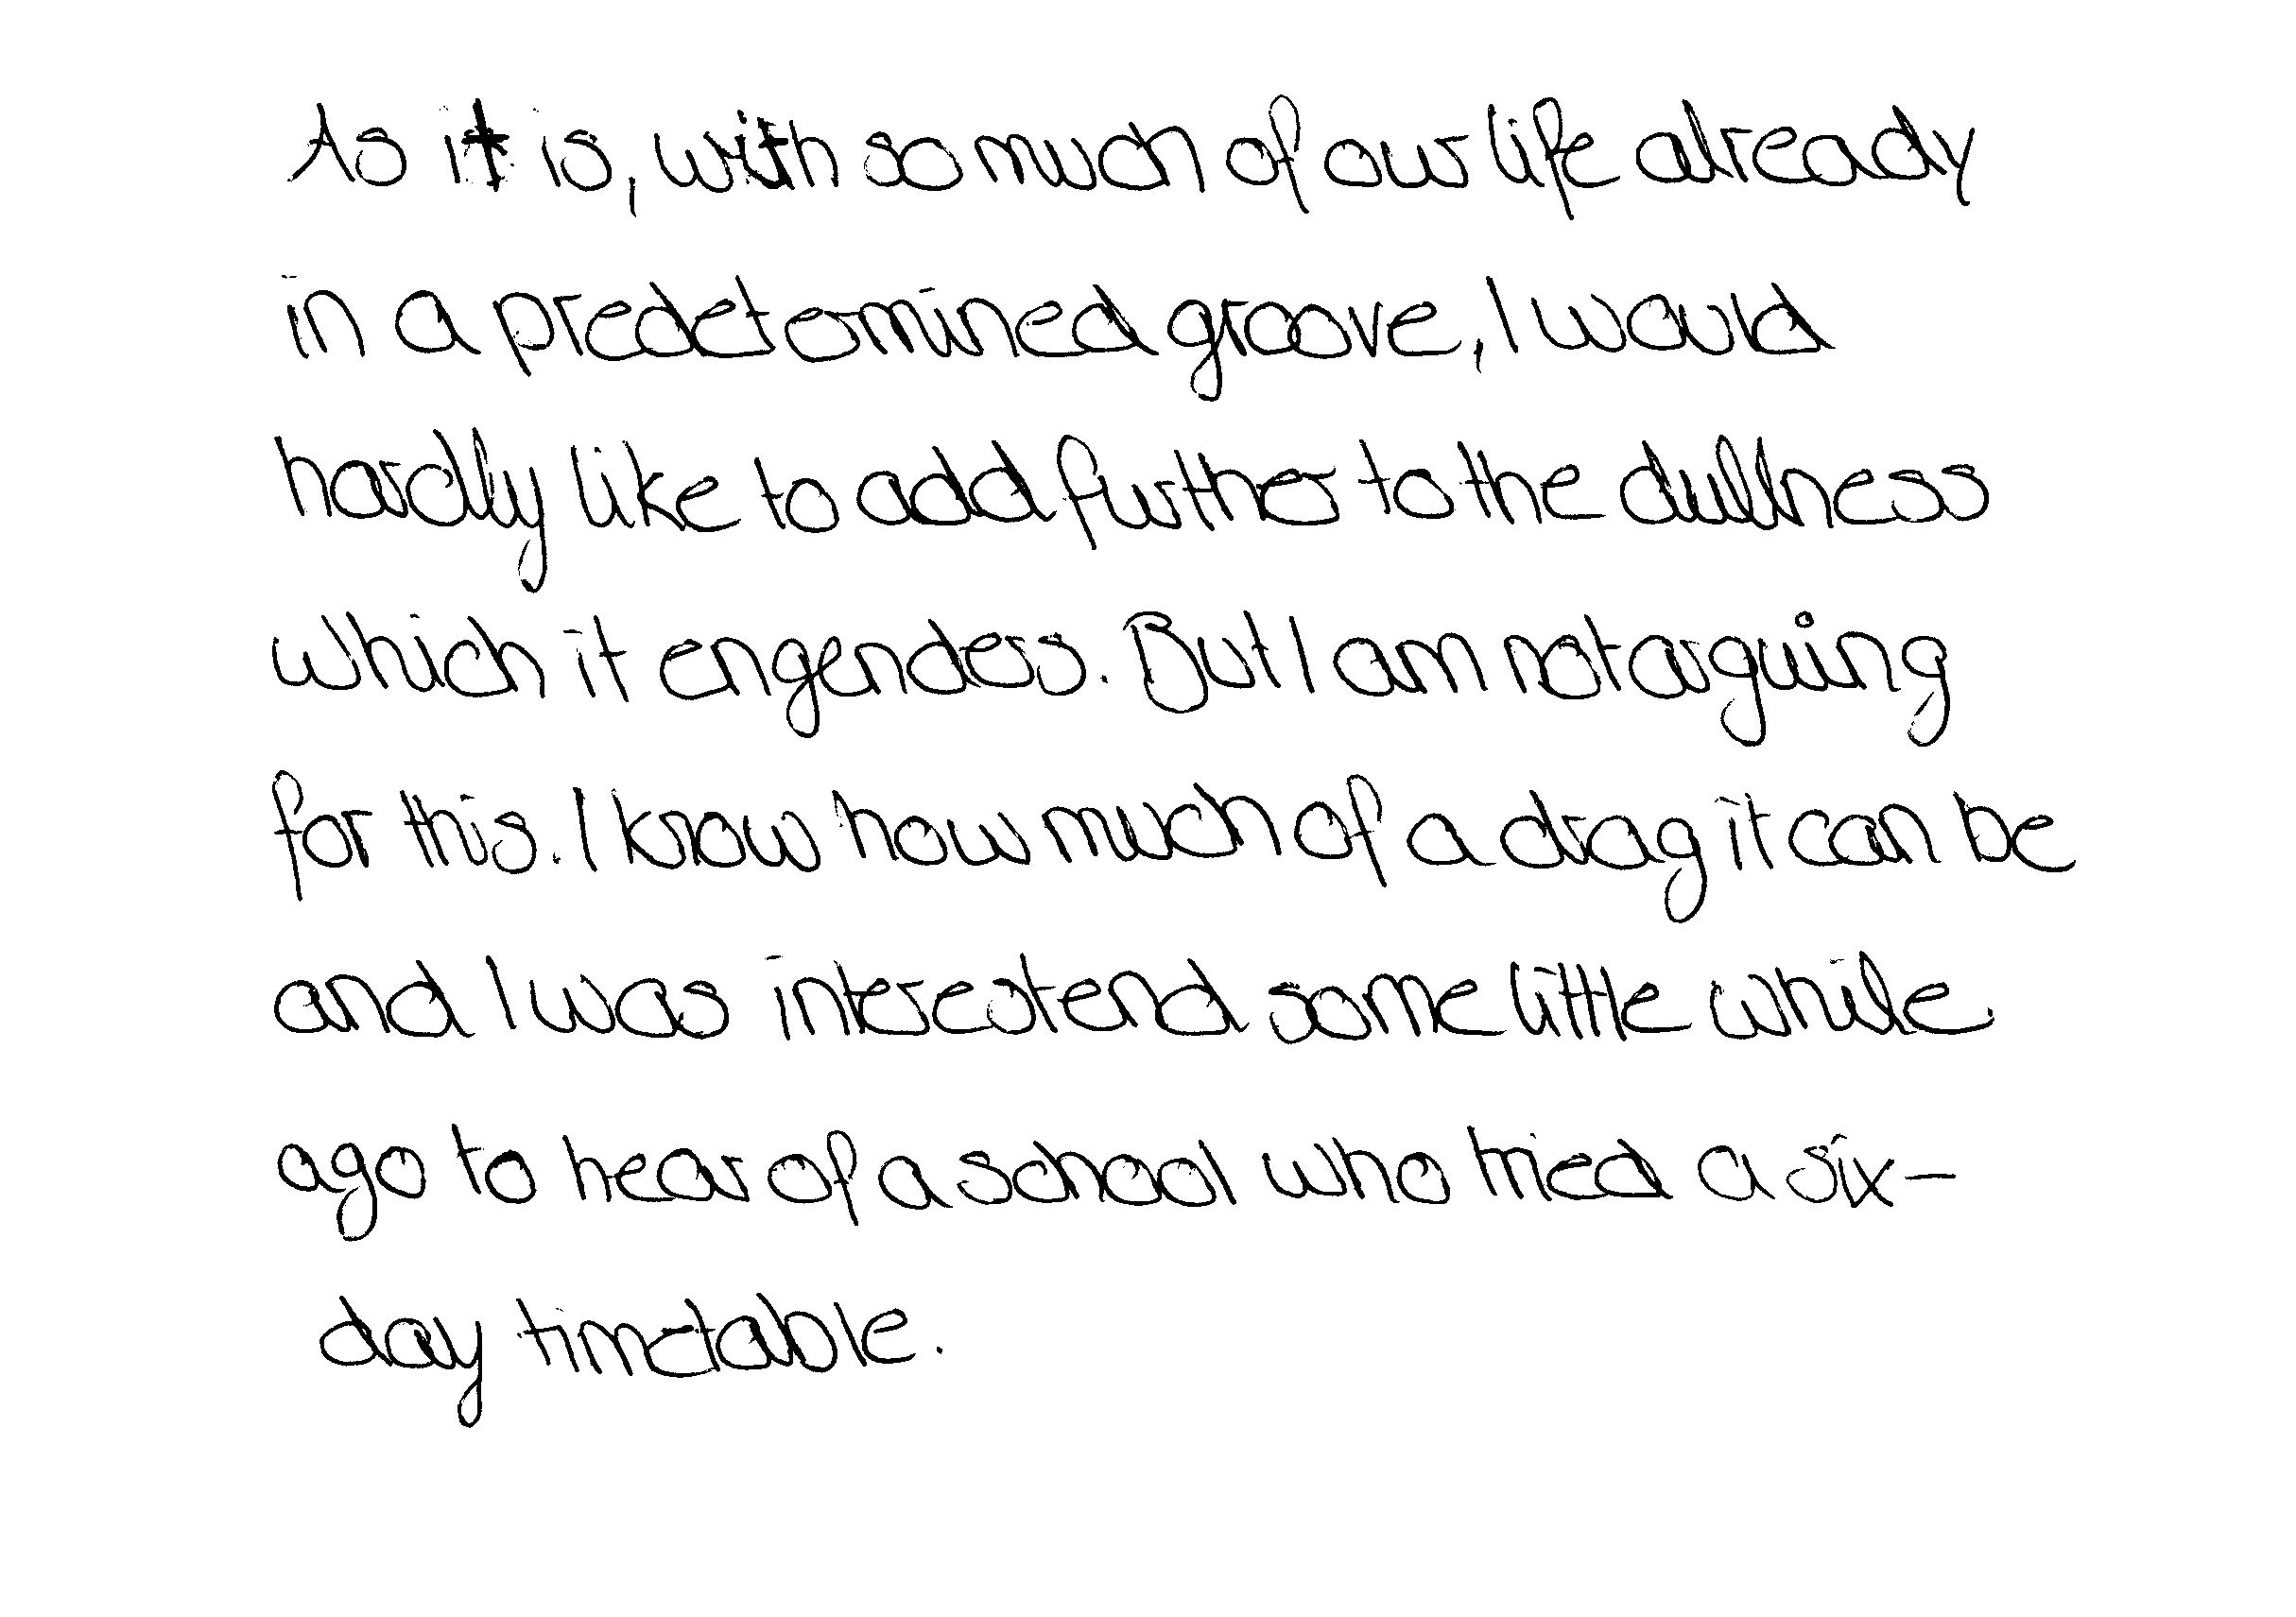 As it is, with so much of our life already
in a predetermined groove, I would
hardly like to add further to the dullness
which it engenders. But I am not arguing
for this. I know how much of a drag it can be
and I was interestend some little while
ago to hear of a school who tried a six-
day timetable.